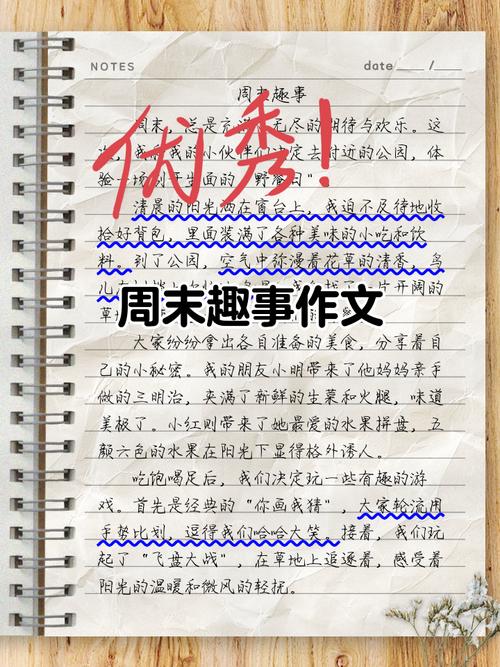 NOTES
date /
周末趣事
优秀!
周末,总是充 无尽的期待与欢乐。这
我 我的小伙伴们决定去附近的公园,体
验一场别开生面的"野餐日"。
清晨的阳光洒在窗台上,我迫不及待地收
拾好背包,里面装满了各种美味的小吃和饮
料。到了公园,空气中弥漫着花草的清香,鸟
儿在 片开阔的
周末趣事作文
草
大家纷纷拿出各自准备的美食,分享着自
己的小秘密。我的朋友小明带来了他妈妈亲手
做的三明治,夹满了新鲜的生菜和火腿,味道
美极了。小红则带来了她最爱的水果拼盘,五
颜六色的水果在阳光下显得格外诱人。
吃饱喝足后,我们决定玩一些有趣的游
戏。首先是经典的"你画我猜",大家轮流用
手势比划,逗得我们哈哈大笑。接着,我们玩
起了"飞盘大战",在草地上追逐着,感受着
阳光的温暖和微风的轻抚。